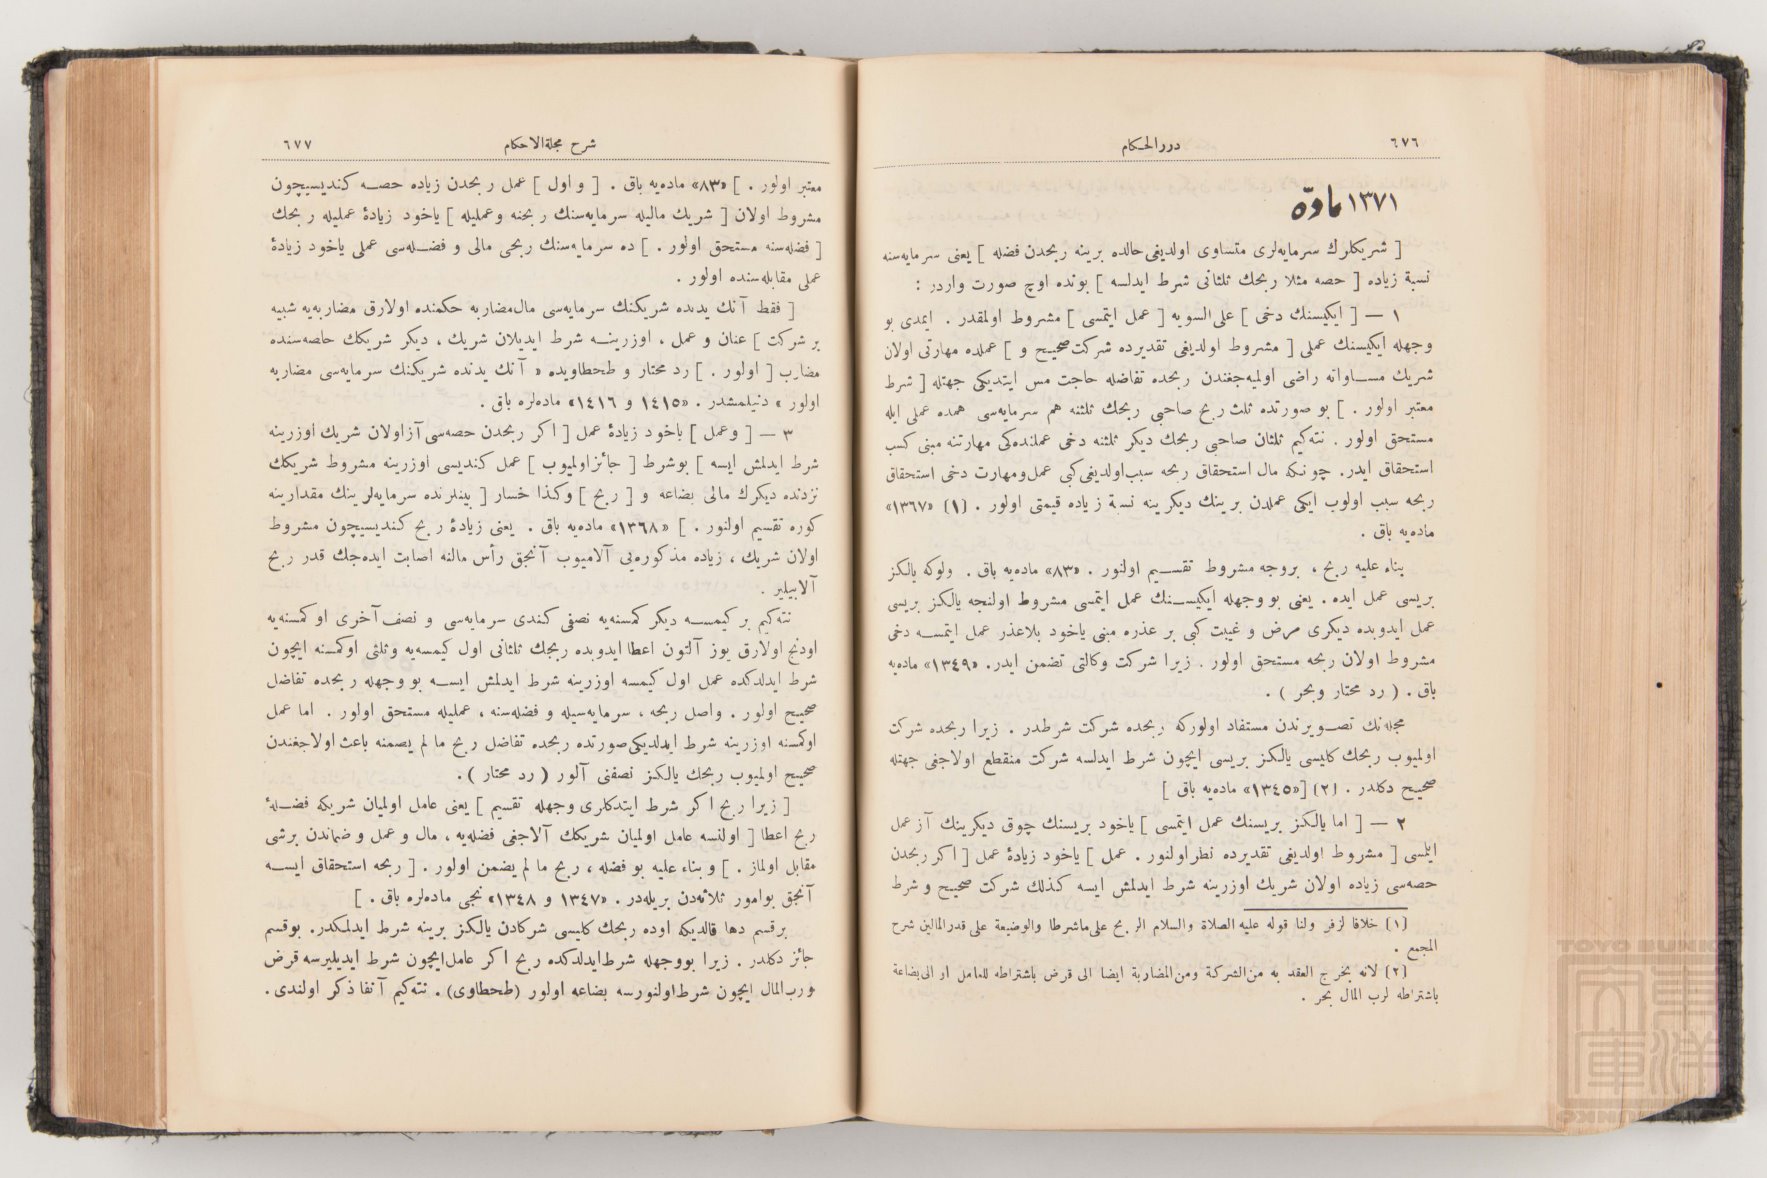 ٦٧٦
دررالحكام
١٣٧١ مادّه
[ شريكلرك سرمايه‌لرى متساوى اولديغى حالده برينه ربحدن فضله ] يعنى سرمايه‌سنه
نسبة زياده [ حصه مثلا ربحك ثلثانى شرط ايدلسه ] بونده اوچ صورت واردر :
١ — [ ايكيسنك دخى ] على‌السويه [ عمل ايتمسى ] مشروط اولمقدر . ايمدى بو
وجهله ايكيسنك عملى [ مشروط اولديغى تقديرده شركت صحيح و ] عملده مهارتى اولان
شريك مساواته راضى اولميه‌جغندن ربحده تفاضله حاجت مس ايتديكى جهتله [ شرط
معتبر اولور . ] بو صورتده ثلث ربح صاحبى ربحك ثلثنه هم سرمايه‌سى همده عملى ايله
مستحق اولور . نته‌كيم ثلثان صاحبى ربحك ديكر ثلثنه دخى عملنده‌كى مهارتنه مبنى كسب
استحقاق ايدر. چونكه مال استحقاق ربحه سبب‌اولديغى‌كبى عمل‌ومهارت دخى استحقاق
ربحه سبب اولوب ايكى عملدن برينك ديكرينه نسبة زياده قيمتى اولور . (١) «١٣٦٧»
ماده‌يه باق .
بناء عليه ربح ، بروجه مشروط تقسيم اولنور . «٨٣» ماده‌يه باق . ولوكه يالكز
بريسى عمل ايده . يعنى بو وجهله ايكيسنك عمل ايتمسى مشروط اولنجه يالكز بريسى
عمل ايدوبده ديكرى مرض و غيبت كبى بر عذره مبنى ياخود بلاعذر عمل ايتمسه دخى
مشروط اولان ربحه مستحق اولور . زيرا شركت وكالتى تضمن ايدر. «١٣٤٩» ماده‌يه
باق . ( رد محتار وبحر ) .
مجله‌نك تصويرندن مستفاد اولوركه ربحده شركت شرطدر . زيرا ربحده شركت
اولميوب ربحك كليسى يالكز بريسى ايچون شرط ايدلسه شركت منقطع اولاجغى جهتله
صحيح دكلدر . (٢) [«١٣٤٥» ماده‌يه باق ]
٢ — [ اما يالكز بريسنك عمل ايتمسى ] ياخود بريسنك چوق ديكرينك آز عمل
ايلمسى [ مشروط اولديغى تقديرده نظر اولنور . عمل ] ياخود زيادهٔ عمل [ اكر ربحدن
حصه‌سى زياده اولان شريك اوزرينه شرط ايدلمش ايسه كذلك شركت صحيح و شرط
(١) خلافا لزفر ولنا قوله عليه الصلاة والسلام الربح على ماشرطا والوضيعة على قدرالمالين شرح
المجمع .
(٢) لانه يخرج العقد به من‌الشركة ومن‌المضاربة ايضا الى قرض باشتراطه للعامل او الى‌بضاعة
باشتراطه لرب المال بحر .
شرح مجلةالاحكام
٦٧٧
معتبر اولور . ] «٨٣» ماده‌يه باق . [ و اول ] عمل ربحدن زياده حصه كنديسيچون
مشروط اولان [ شريك ماليله سرمايه‌سنك ربحنه وعمليله ] ياخود زيادهٔ عمليله ربحك
[ فضله‌سنه مستحق اولور . ] ده سرمايه‌سنك ربحى مالى و فضله‌سى عملى ياخود زيادهٔ
عملى مقابله‌سنده اولور .
[ فقط آنك يدنده شريكنك سرمايه‌سى مال‌مضاربه حكمنده اولارق مضاربه‌يه شبيه
بر شركت ] عنان و عمل ، اوزرينه شرط ايديلان شريك ، ديكر شريكك حصه‌سنده
مضارب [ اولور . ] رد محتار و طحطاويده « آنك يدنده شريكنك سرمايه‌سى مضاربه
اولور » دنيلمشدر . «١٤١٥ و ١٤١٦» ماده‌لره باق .
٣ — [ وعمل ] ياخود زيادهٔ عمل [ اكر ربحدن حصه‌سى آزاولان شريك اوزرينه
شرط ايدلمش ايسه ] بوشرط [ جائزاولميوب ] عمل كنديسى اوزرينه مشروط شريكك
نزدنده ديكرك مالى بضاعه و [ ربح ] وكذا خسار [ بينلرنده سرمايه‌لرينك مقدارينه
كوره تقسيم اولنور . ] «١٣٦٨» ماده‌يه باق . يعنى زيادهٔ ربح كنديسيچون مشروط
اولان شريك ، زياده مذكوره‌يى آلاميوب آنجق رأس مالنه اصابت ايده‌جك قدر ربح
آلابيلير .
نته‌كيم بر كيمسه ديكر كمسنه‌يه نصفى كندى سرمايه‌سى و نصف آخرى او كمسنه‌يه
اودنج اولارق يوز آلتون اعطا ايدوبده ربحك ثلثانى اول كيمسه‌يه وثلثى اوكمسنه ايچون
شرط ايدلدكده عمل اول كيمسه اوزرينه شرط ايدلمش ايسه بو وجهله ربحده تفاضل
صحيح اولور . واصل ربحه ، سرمايه‌سيله و فضله‌سنه ، عمليله مستحق اولور . اما عمل
اوكمسنه اوزرينه شرط ايدلديكى‌صورتده ربحده تفاضل ربح ما لم يضمنه باعث اولاجغندن
صحيح اولميوب ربحك يالكز نصفنى آلور ( رد محتار ) .
[ زيرا ربح اكر شرط ايتدكلرى وجهله تقسيم ] يعنى عامل اولميان شريكه فضلهٔ
ربح اعطا [ اولنسه عامل اولميان شريكك آلاجغى فضله‌يه ، مال و عمل و ضماندن برشى
مقابل اولماز . ] و بناء عليه بو فضله ، ربح ما لم يضمن اولور . [ ربحه استحقاق ايسه
آنجق بوامور ثلاثه‌دن بريله‌در . «١٣٤٧ و ١٣٤٨» نجى ماده‌لره باق . ]
برقسم دها قالديكه اوده ربحك كليسى شركادن يالكز برينه شرط ايدلمكدر. بوقسم
جائز دكلدر . زيرا بووجهله شرط‌ايدلدكده ربح اكر عامل‌ايچون شرط ايديليرسه قرض
و رب‌المال ايچون شرط اولنورسه بضاعه اولور (طحطاوى) . نته‌كيم آنفا ذكر اولندى .
TOYO BUNKO
東洋文庫